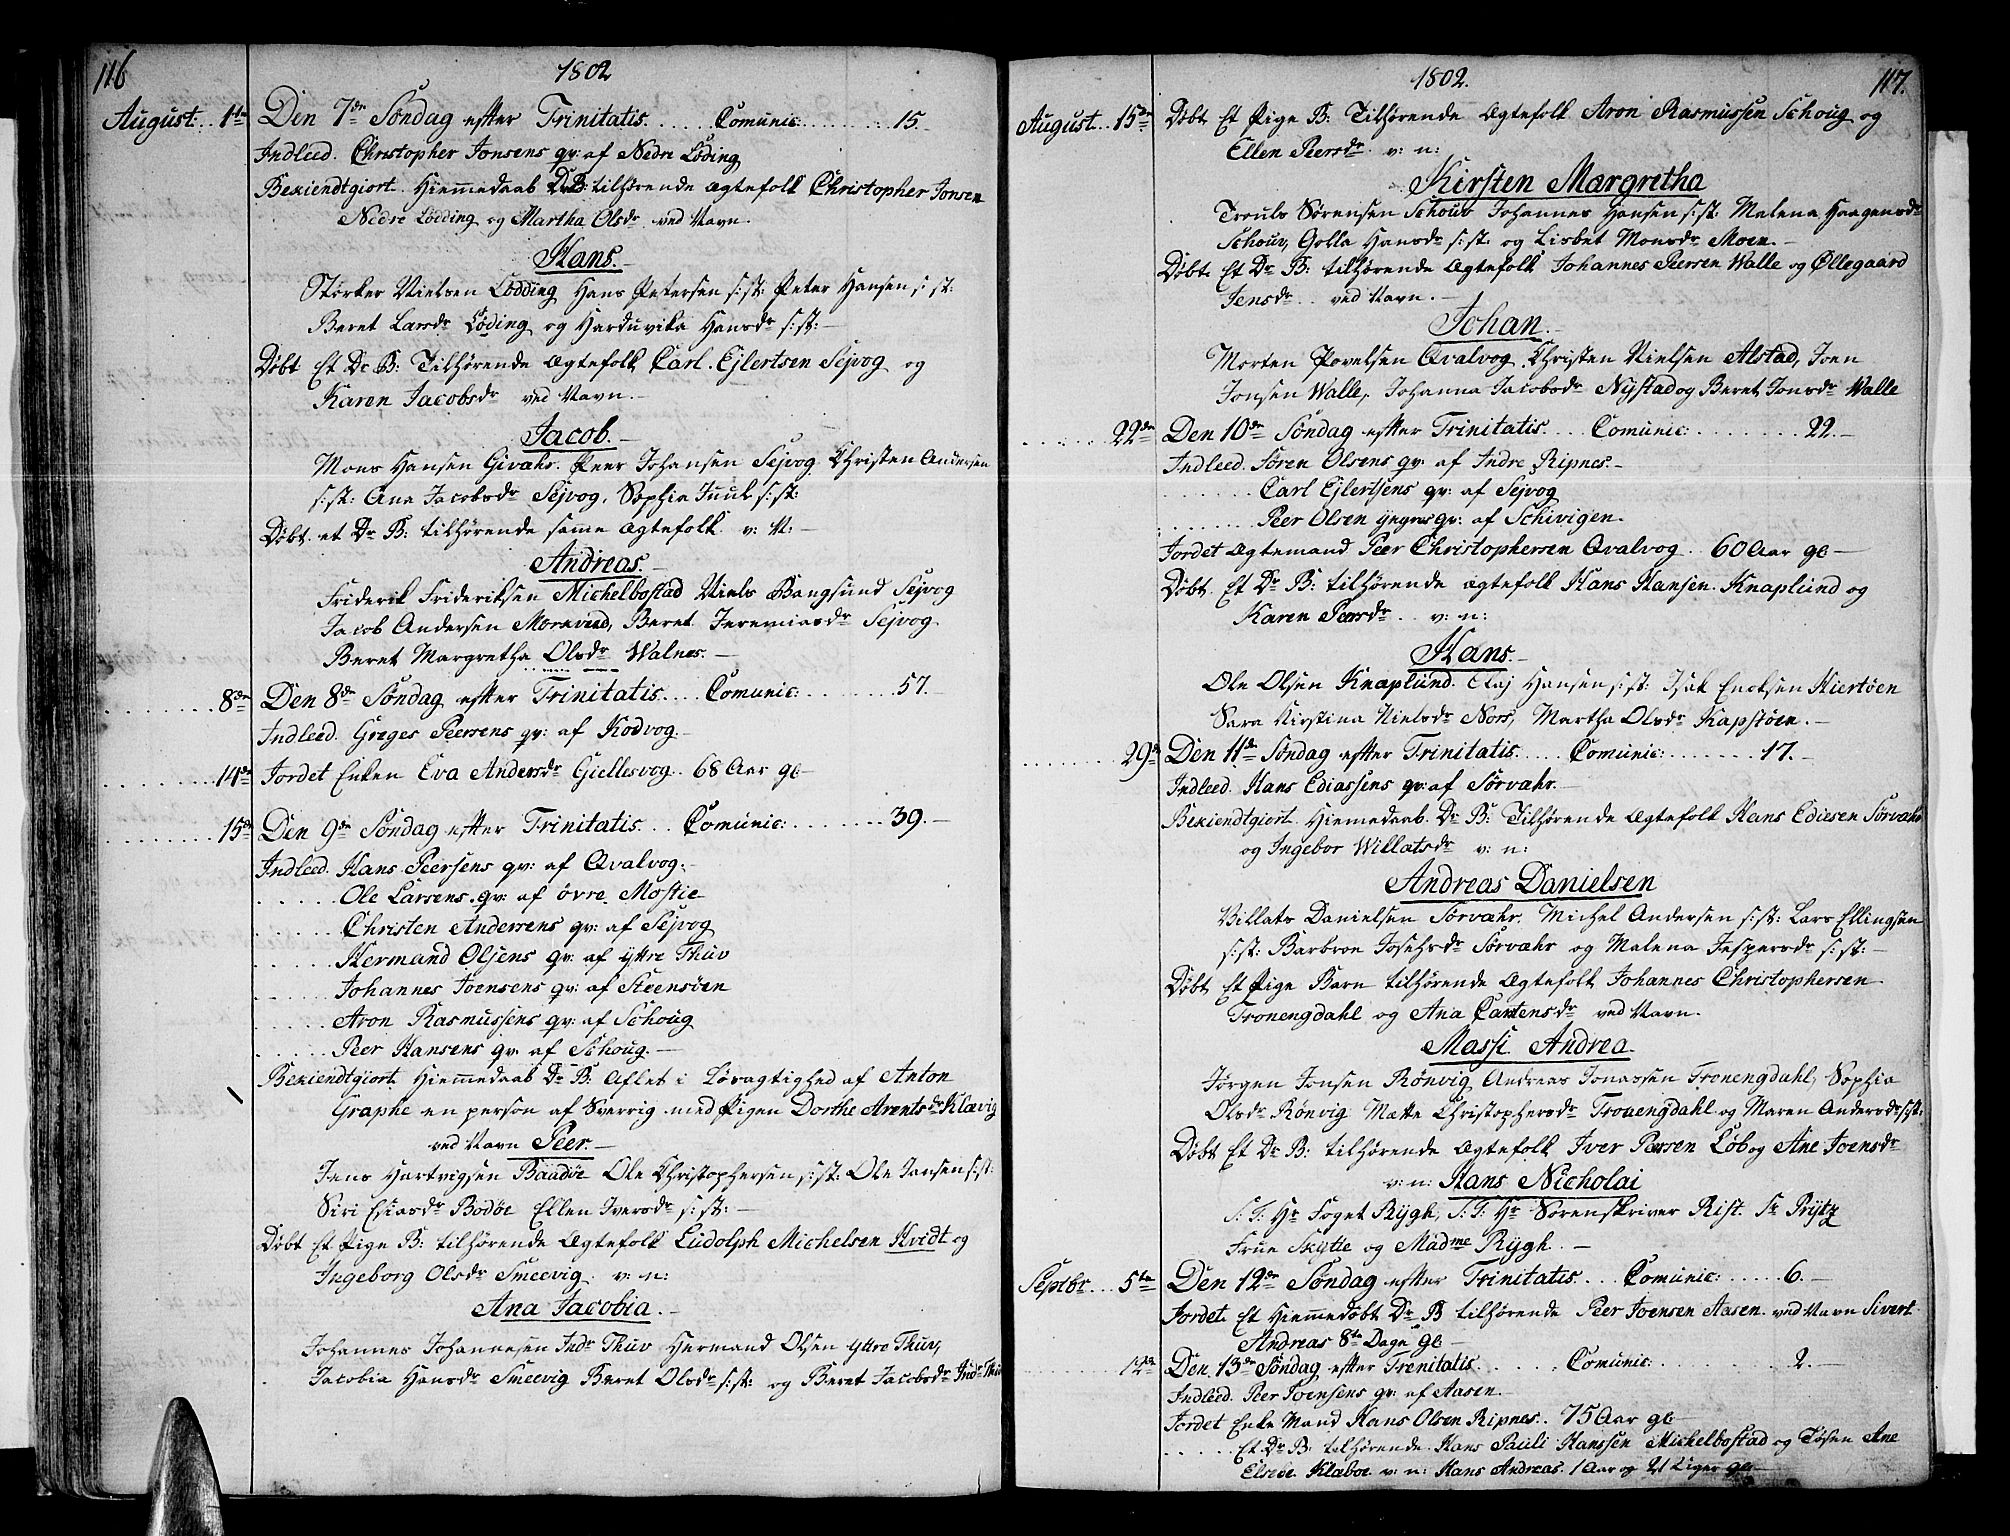 116
1802
August. 1te Den 7de Søndag efter Trinitatis. Comunic: 15.
Indleed. Christopher Jonsens qv: af Nedre Løding
Bekiendtgiort Hiemmedaab D: B: tilhørende Ægtefolk Christopher Jonsen
Nedre Lødding og Martha Olsdr ved Navn.
Hans.
Størker Nielsen Lødding Hans Petersen s: st: Peter Hansen s: st:
Beret Larsdr Løding og Harduvika Hansdr s: st:
Døbt Et Dr B: Tilhørende Ægtefolk Carl Ejlertsen Sejvog og
Karen Jacobsdr ved Navn.
Jacob.
Mons Hansen Givahr. Peer Johansen Sejvog Christen Andersen
s: st: Ana Jacobsdr Sejvog, Sophia Juul s: st:
Døbt et Dr B: tilhørende samme Ægtefolk v: N:
Andreas.
Friderik Frideriksen Michelbostad Niels Bangsund Sejvog
Jacob Andersen Mornvied, Beret Jeremiasdr Sejvog.
Beret Margretha Olsdr Walnes.
8de Den 8de Søndag efter Trinitatis. Comunic: 57.
Indleed. Greges Peersens qv: af Kodvog.
14de Jordet Enken Eva Andersdr Giellesvog. 68 Aar gl
15de Den 9de Søndag efter Trinitatis. Comunic: 39.
Indleed. Hans Peersens qv: af Qvalvog.
Ole Larsens qv: af øvre Mostie
Christen Andersens qv: af Sejvog
Hermand Olsens qv: af yttre Thuv
Johannes Joensens qv: af Steensøen
Aron Rasmussens qv: af Schoug
Peer Hansens qv: af Schoug.
Bekiendtgiort Hiemmedaab Dr B: Aflet i Løsagtighed af Anton
Graphe en person af Sverrig med Pigen Dorthe Arentsdr Klævig
ved Navn Peer.
Jens Hartvigsen Baadøe Ole Christophersen s: st: Ole Jansen s: st:
Siri Esiasdr Bodøe Ellen Iversdr s: st:
Døbt Et Pige B: tilhørende Ægtefolk Ludolph Michelsen Hvidt og
Ingeborg Olsdr Smeevig v: n:
Ana Jacobia.
Johannes Johannesen Indr Thuv Hermand Olsen yttre Thuv,
Jacobia Hansdr Smeevig Beret Olsdr s: st: og Beret Jacobsdr Indr Thuv
1802.
117.
August. 15de Døbt Et Pige B: Tilhørende Ægtefolk Aron Rasmussen Schoug og
Ellen Peersdr v: n:
Kirsten Margretha
Trouls Sørensen Schouv Johannes Hansen s: st: Malena Haagensdr
Schouv, Golla Hansdr s: st: og Lisbet Monsdr Moen.
Døbt Et Dr B: tilhørende Ægtefolk Johannes Peersen Walle og Øllegaard
Jensdr ved Navn.
Johan.
Morten Povelsen Qvalvog Christen Nielsen Alstad, Joen
Jonsen Walle, Johanna Jacobsdr Nystad og Beret Jonsdr Walle
22de Den 10de Søndag efter Trinitatis. Comunic: 22.
Indleed. Søren Olsens qv: af Indre Ripnes.
Carl Ejlertsens qv: af Sejvog
Peer Olsen yngres qv: af Schivigen.
Jordet Ægtemand Peer Christophersen Qvalvog 60 Aar gl
Døbt Et Dr B: tilhørende Ægtefolk Hans Hansen Knaplund og
Karen Peersdr v: n:
Hans.
Ole Olsen Knaplund. Claj Hansen s: st: Isak Encksen Hiertøen
Sara Kirstina Nielsdr Nors, Martha Olsdr Kapstøen.
29de Den 11de Søndag efter Trinitatis. Comunic: 17.
Indleed. Hans Ediassens qv: af Sørvahr.
Bekiendtgiort Hiemmedaab Dr B: Tilhørende Ægtefolk Hans Ediesen Sørvahr
og Ingebor Willatsdr v: n:
Andreas Danielsen
Villats Danielsen Sørvahr, Michel Andersen s: st: Lars Ellingsen
s: st: Barbroe Josephsdr Sørvahr og Malena Jespersdr s: st:
Døbt Et Pige Barn tilhørende Ægtefolk Johannes Christophersen
Tronengdahl og Ana Cartensdr ved Navn.
Massi Andrea.
Jørgen Jonsen Rønvig Andreas Jonassen Tronengdahl, Sophia
Olsdr Rønvig Mætte Christophersdr Tronengdahl og Maren Andersdr s: st:
Døbt Et Dr B: tilhørende Ægtefolk Iver Peersen Løb og Ane Joensdr
v: n: Hans Nicholai
S: T: Hr Foget Rÿgh, S: T: Hr Sorenskriver Rist. Sr Prÿtz
Frue Skÿtte og Madme Rÿgh.
Septbr. 5te Den 12de Søndag efter Trinitatis. Comunic: 6.
Jordet Et Hiemmedøbt Dr B tilhørende Peer Joensen Aasen ved Navn Sivert
Andreas 8te Dage gl
12de Den 13de Søndag efter Trenitatis. Comunic: 2.
Indleed. Peer Joensens qv: af Aasen.
Jordet Enke Mand Hans Olsen Ripnes. 75 Aar gl
Et Dr B: tilhørende Hans Pauli Hanssen Michelbostad og Tøsen Ane
Elsebe Klæboe v: n: Hans Andreas. 1 Aar og 21 Uger gl